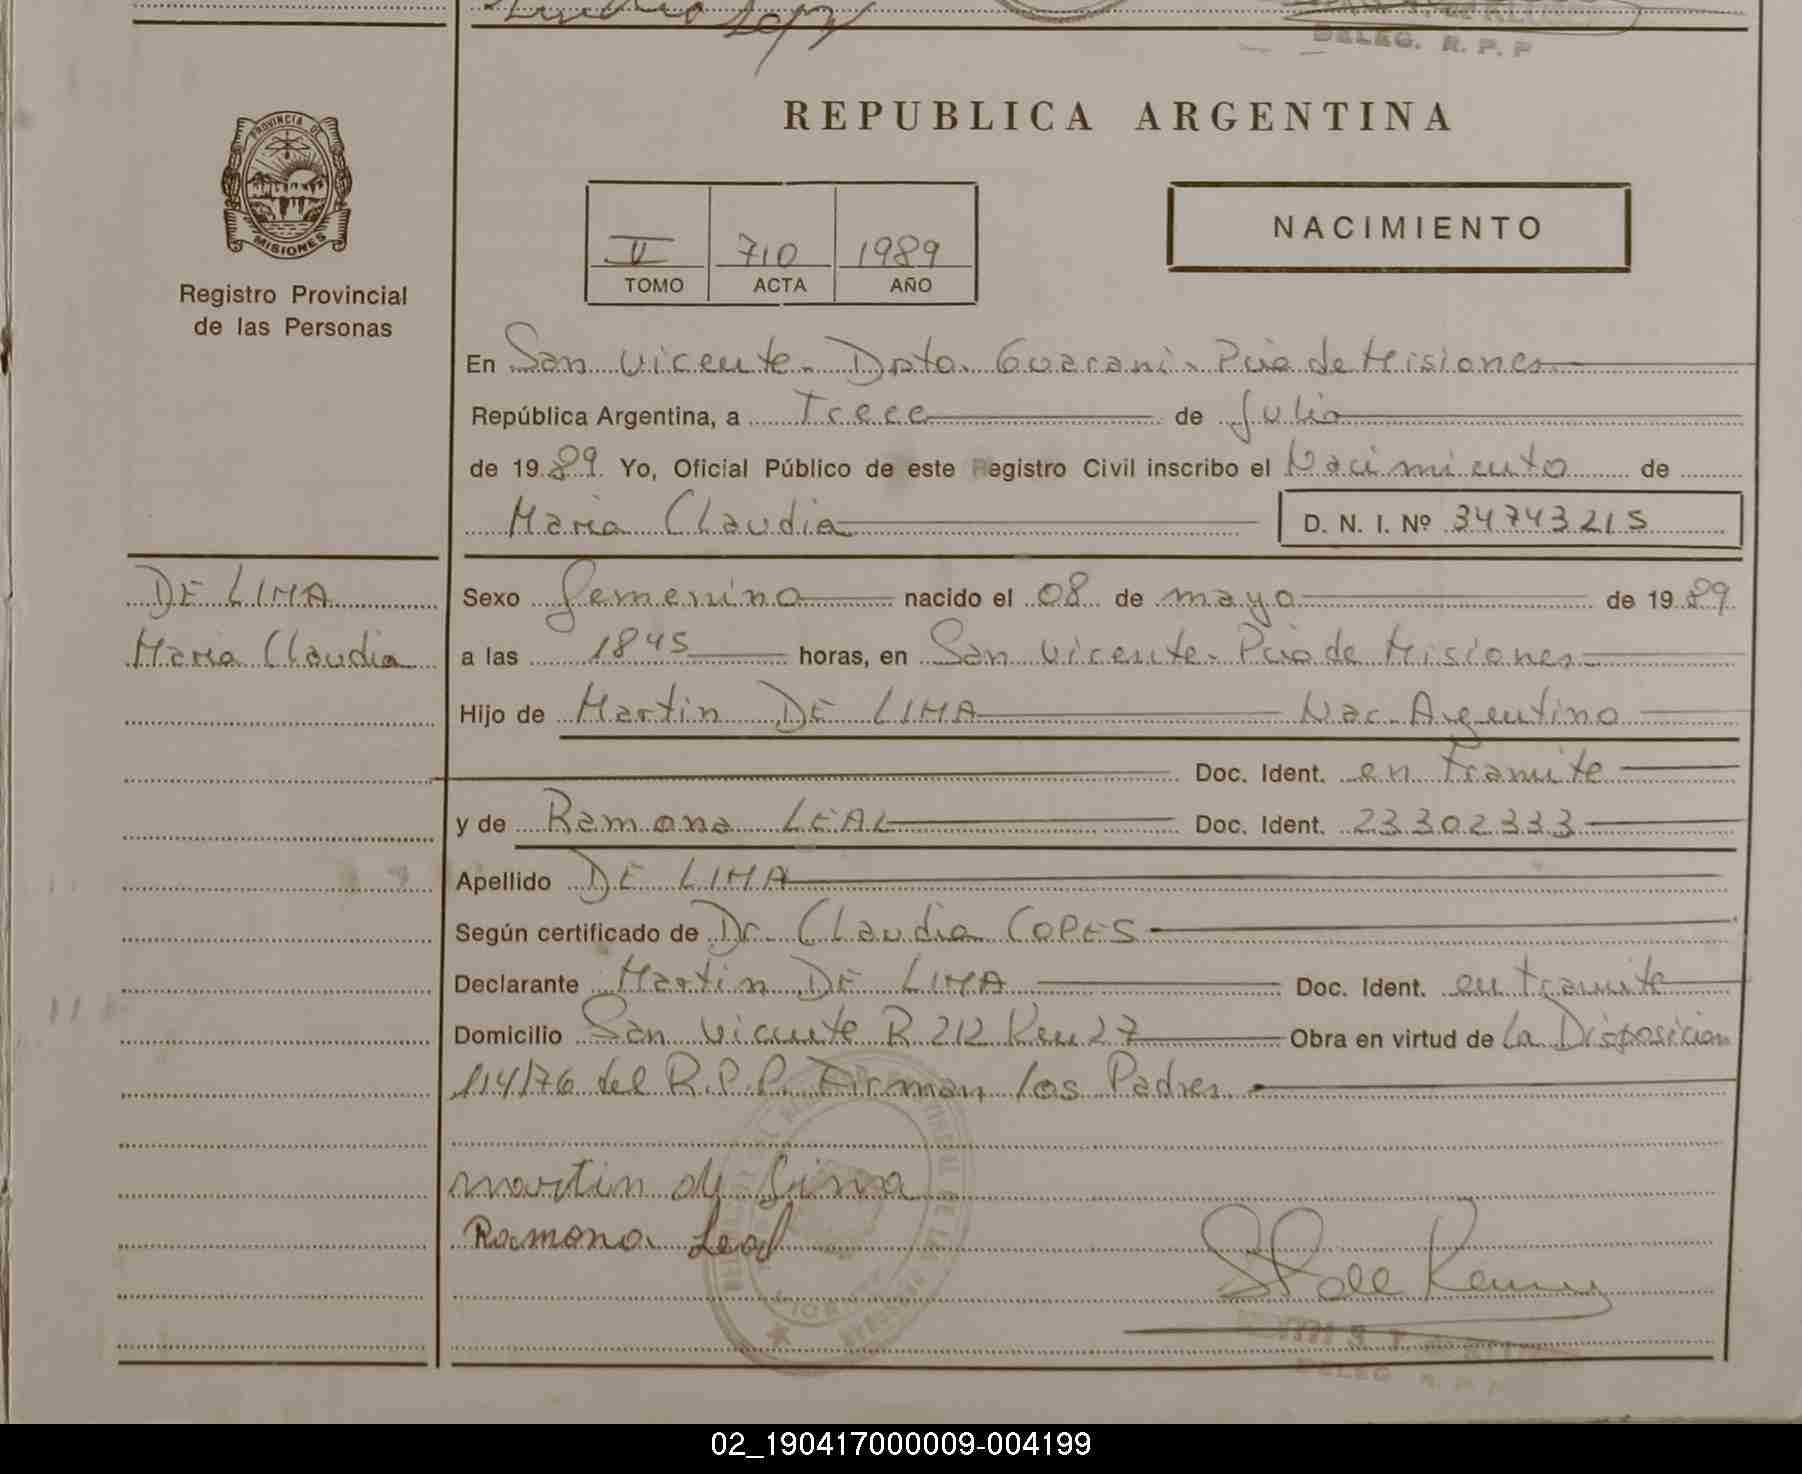 DELEG. R. P. P
PROVINCIA DE
MISIONES
Registro Provincial
de las Personas
REPUBLICA ARGENTINA
NACIMIENTO
II 710 1989
TOMO ACTA AÑO
En San Vicente. Dpto. Guarani. Pcia de Misiones
República Argentina, a Trece de Julio
de 1989. Yo, Oficial Público de este Registro Civil inscribo el Nacimiento de
Maria Claudia D. N. I. Nº 34743215
DE LIMA
Maria Claudia
Sexo femenino nacido el 08 de mayo de 1989
a las 1845 horas, en San Vicente. Pcia de Misiones
Hijo de Martin DE LIMA Nac. Argentino
Doc. Ident. en tramite
y de Ramona LEAL Doc. Ident. 23302333
Apellido DE LIMA
Según certificado de Dr. Claudia COPES
Declarante Martin DE LIMA Doc. Ident. en tramite
Domicilio San Vicente R 212 Km 27 Obra en virtud de La Disposicion
114/76 del R.P.P. Firman los Padres
martin de Lima
Ramona Leal
DELEG R P P
02_190417000009-004199